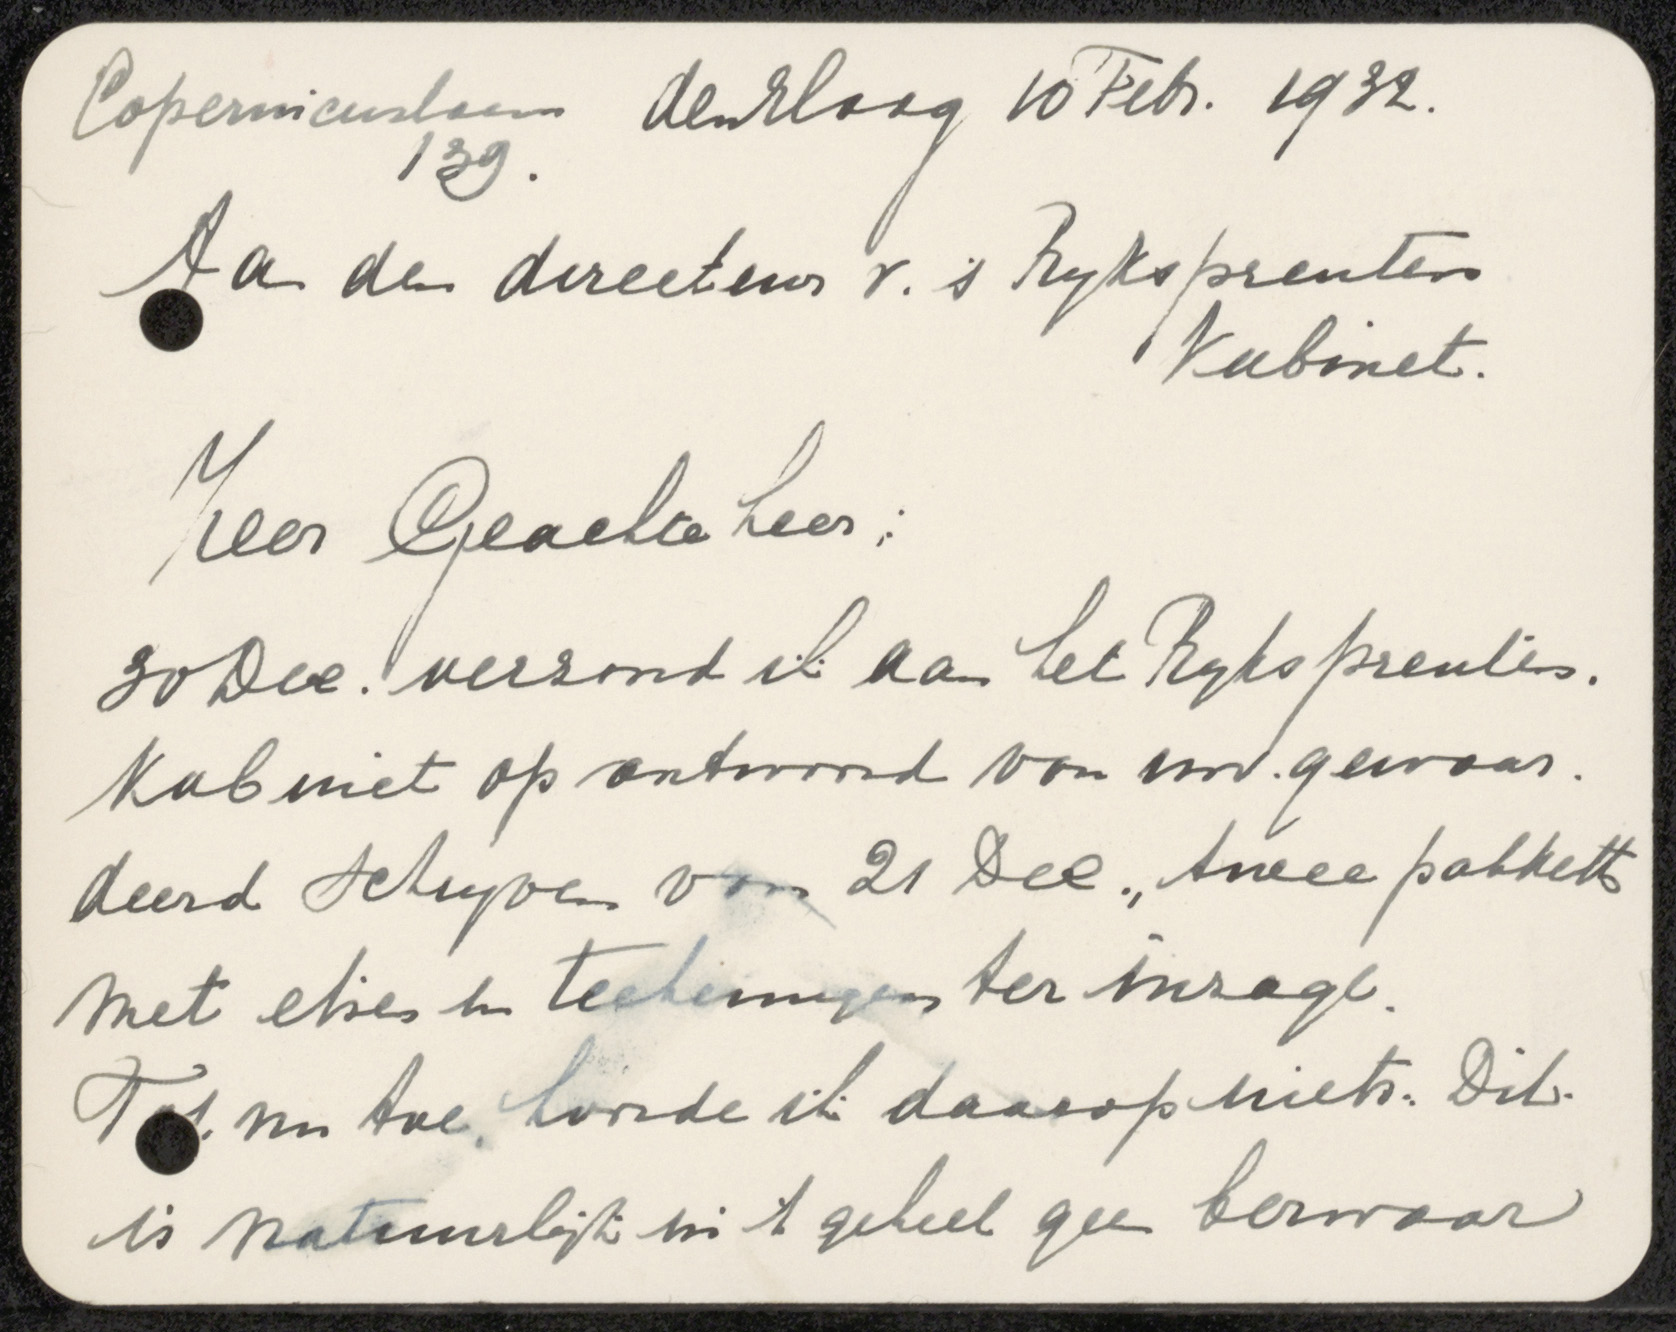 Copernicuslaan den Haag 10 Febr. 1932.
139.
Aan den directeur v. 's Ryksprenten
Kabinet.
Zeer Geachte heer;
30 Dec. verzond ik aan het Ryksprenten.
Kabinet op antwoord van uw. gewaar.
deerd schryven van 21 Dec., twee pakketts
met etsen en teekeningen ter inzage.
Tot nu toe, hoorde ik daarop niets. Dit.
is natuurlijk in 't geheel geen bezwaar